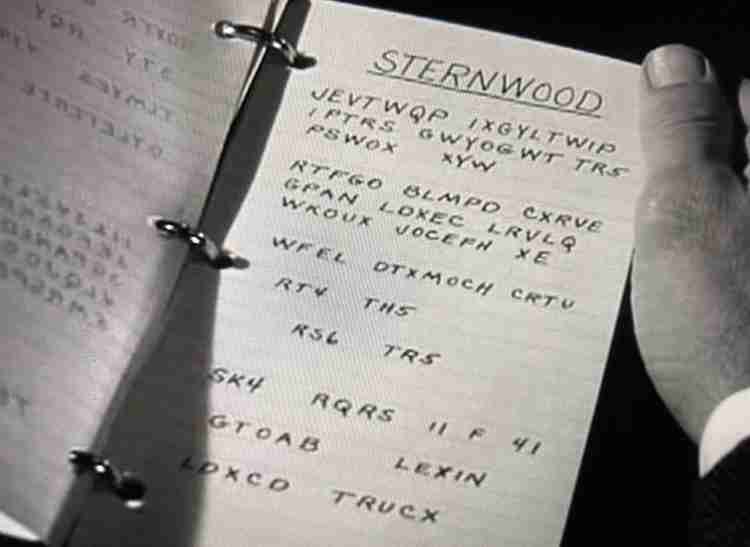 STERNWOOD
JEVTWQP IXGYLTWIP
IPTRS GWYOGWT TRS
PSWOX XYW
RTFGO BLMPD CXRVE
GPAN LDXEC LRVLQ
WKOUX VOCEFH XE
WFEL DTXMOCH CRTU
RT4 TH5
RS6 TR5
SK4 RQRS 11 F 41
GTOAB LEXIN
LDXCD TRUCX